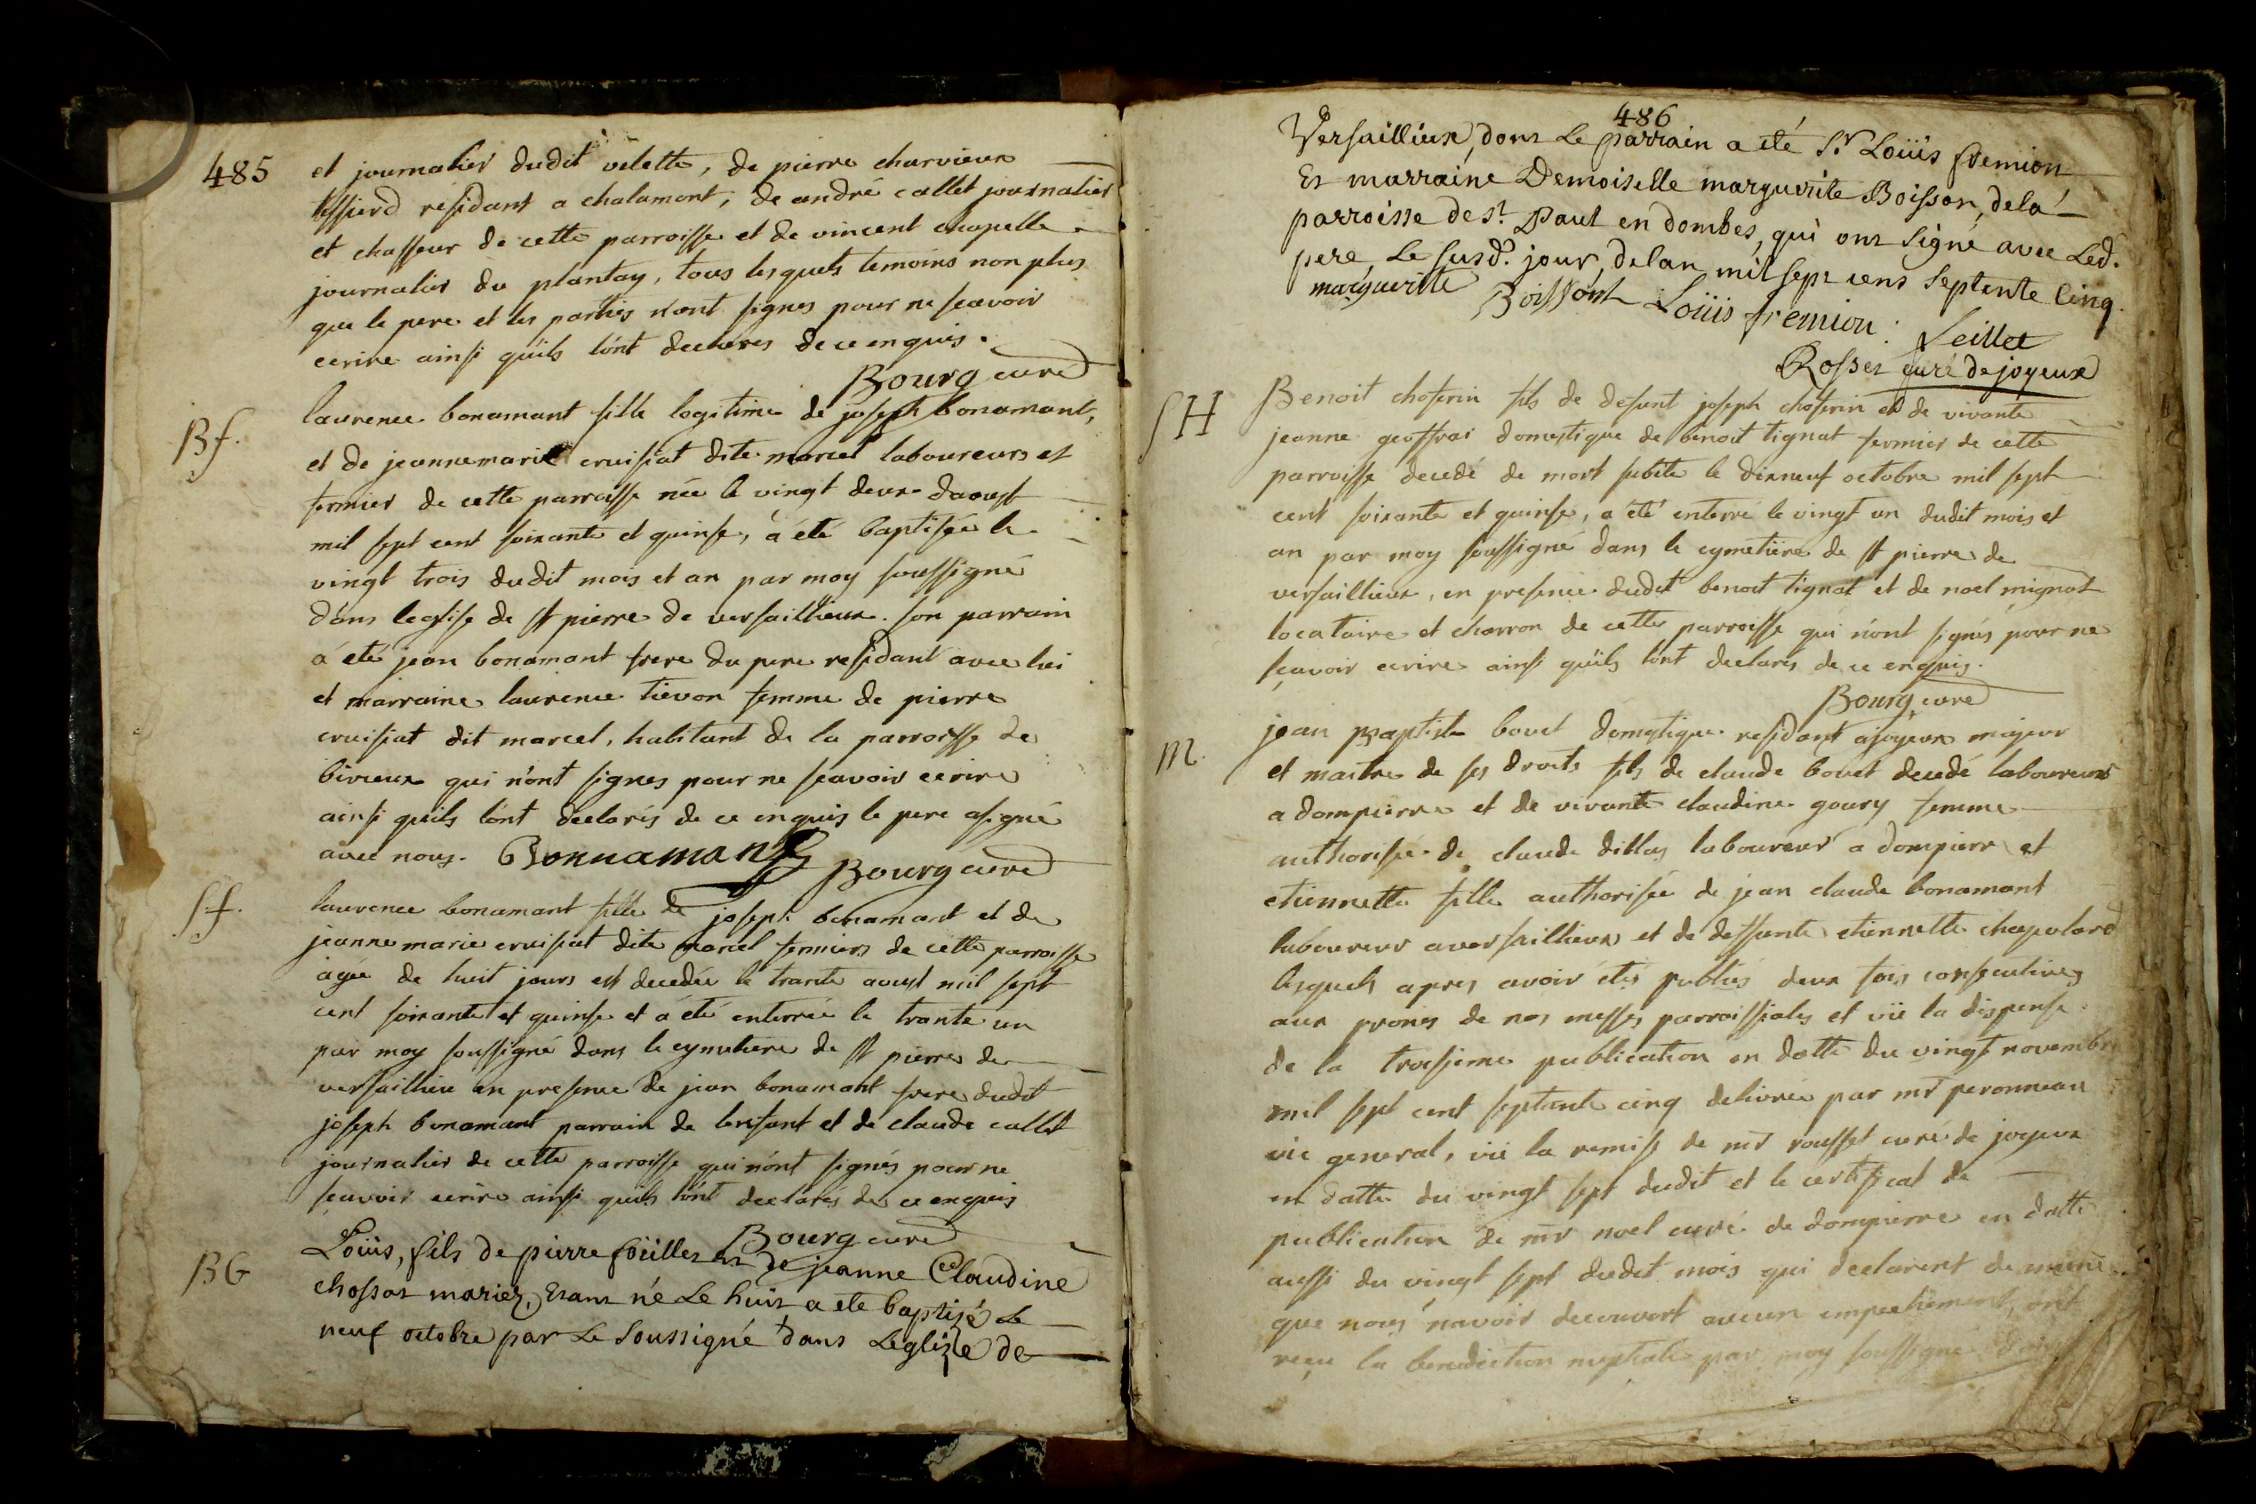 485
et journalier dudit velette, de pierre charvieux
tissierd residant a chalamont, de andré callet journalier
et chasseur de cette parroisse et de vincent chapelle
journalier du plantay, tous lesquels temoins non plus
que le pere et les parties n'ont signes pour ne scavoir
ecrire ainsi qu'ils l'ont declarés de ce enquis.
Bourg curé
Bf.
laurence bonamant fille legitime de joseph bonamant,
et de jeannemarie cruisiat dite marcel laboureurs et
fermier de cette parroisse née le vingt deux daoust
mil sept cent soixante et quinse, a été baptisée le
vingt trois dudit mois et an par moy soussigné
dans leglise de st pierre de versaillieux. son parrain
a été jean bonamant frere du pere residant avec lui
et marraine laurence tievon femme de pierre
cruisiat dit marcel, habitant de la parroisse de
birieux qui n'ont signes pour ne scavoir ecrire
ainsi quils l'ont declarés de ce enquis le pere a signé
avec nous. Bonnamant Bourg curé
Sf.
laurence bonamant fille de joseph bonamant et de
jeanne marie cruisiat dite marcel fermiers de cette parroisse
agée de huit jours est decedée le trante aoust mil sept
cent soixante et quinse et a été enterrée le trante un
par moy soussigné dans le cymetiere de st pierre de
versaillieu en presence de jean bonamant frere dudit
joseph bonamant parrain de lenfant et de claude callet
journalier de cette parroisse qui n'ont signés pour ne
scavoir ecrire ainsi quils l'ont declarés de ce enquis
Bourg curé
BG
Loüis, fils de pierre foüillet et de jeanne Claudine
chossat mariez, Etant né Le huit a ete baptizé Le
neuf octobre par Le Soussigné dans Leglize de
486
Versaillieux, dont Le parrain a eté Sr Loüis fremion
Et marraine Demoiselle marguerite Boisson, dela
parroisse de st Paul en dombes, qui ont signé avec Led.
pere Le susd. jour, delan mil sept cens septente Cinq.
marguerite Boissont Loüis fremion. feillet
Rosset curé de joyeux
SH
Benoit choserin fils de defunt joseph choserin et de vivante
jeanne geoffrai domestique de benoit tignat fermier de cette
parroisse decedé de mort subite le dixneuf octobre mil sept
cent soixante et quinse, a été enterré le vingt un dudit mois et
an par moy soussigné dans le cymetiere de st pierre de
versaillieux, en presence dudit benoit tignat et de noel mignot
locataire et charron de cette parroisse qui n'ont signés pour ne
scavoir ecrire ainsi quils l'ont declarés de ce enquis.
Bourg curé
M.
jean baptiste bouet domestique residant a joyeux majeur
et maitre de ses droits fils de claude bouet decedé laboureur
a dompierre et de vivante claudine goury femme
authorisée de claude dillas laboureur a dompierre et
etiennette fille authorisée de jean claude bonamant
laboureur a versaillieux et de deffunte etiennette chapolard
lesquels apres avoir étés publiés deux fois consecutives
aux prones de nos messes parroissiales et vü la dispense
de la troisieme publication en datte du vingt novembre
mil sept cent septante cinq delivrée par mr peronneau
vic general, vü la remise de mr rousset curé de joyeux
en datte du vingt sept dudit et le certificat de
publication de mr noel curé de dompierre en datte
aussi du vingt sept dudit mois qui declarent de meme
que nous n'avoir decouvert aucun empechement, ont
reçu la benediction nuptiale par moy soussigné